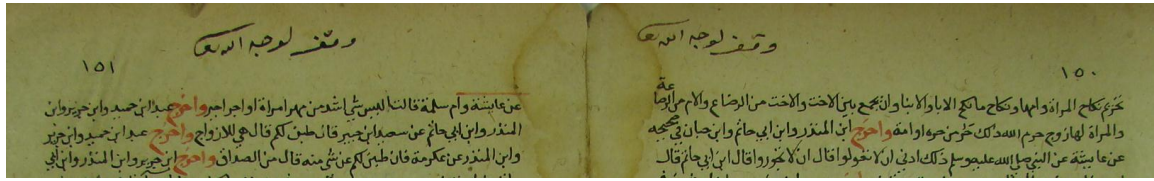 وقف لوجه الله تعالى
١٥٠
تحرم نكاح المراة وامها ونكاح ما نكح الابا والابنا وان يجمع بين الاخت والاخت من الرضاع والام من الرضاعة
والمراة لها زوج حرم الله ذلك حرة او امة واخرج ابن المنذر وابن ابي حاتم وابن حبان في صحيحه
عن عايشة عن النبي صلى الله عليه وسلم ذلك ادنى ان لا تعولوا قال ان لا تجوروا قال ابن ابي حاتم قال
وقف لوجه الله تعالى
١٥١
عن عايشة وام سلمة قالتا ليس شي اشد من مهر امراة او اجر اجير واخرج عبد ابن حميد وابن جرير وابن
المنذر وابن ابي حاتم عن سعيد ابن جبير فان طبن لكم قال هي للازواج واخرج عبد ابن حميد وابن جرير
وابن المنذر عن عكرمة فان طبن لكم عن شي منه قال من الصداق واخرج ابن جرير وابن المنذر وابن ابي